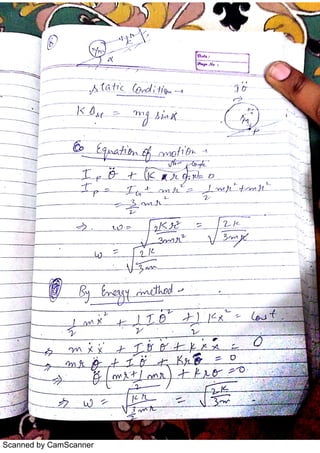 Date :
Page No :
static Condition
K Δst = mg sinα
Equation of motion
I_p θ̈ + (K r θ) r = 0
I_p = I_G + mr² = 1/2 mr² + mr²
= 3/2 mr²
⇒ ω = √(2Kr²/3mr²) = √(2K/3m)
ω = √(2K/3m)
By Energy method
1/2 mẋ² + 1/2 I θ̇² + 1/2 Kx² = Const
⇒ m ẋ ẍ + I θ̇ θ̈ + K x ẋ = 0
⇒ m r θ̈ + I θ̈ + K r θ = 0
⇒ θ̈ (mr + 1/2 mr) + K r θ = 0
⇒ ω = √(Kr / 3/2 mr) = √(2K/3m)
Scanned by CamScanner